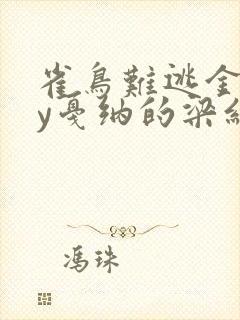 雀鳥難逃金
y戛纳的梁
馮珠